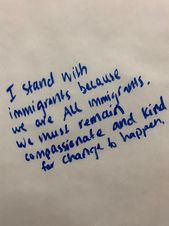 I stand with
immigrants because
we are All immigrants.
We must remain
compassionate and kind
for change to happen.